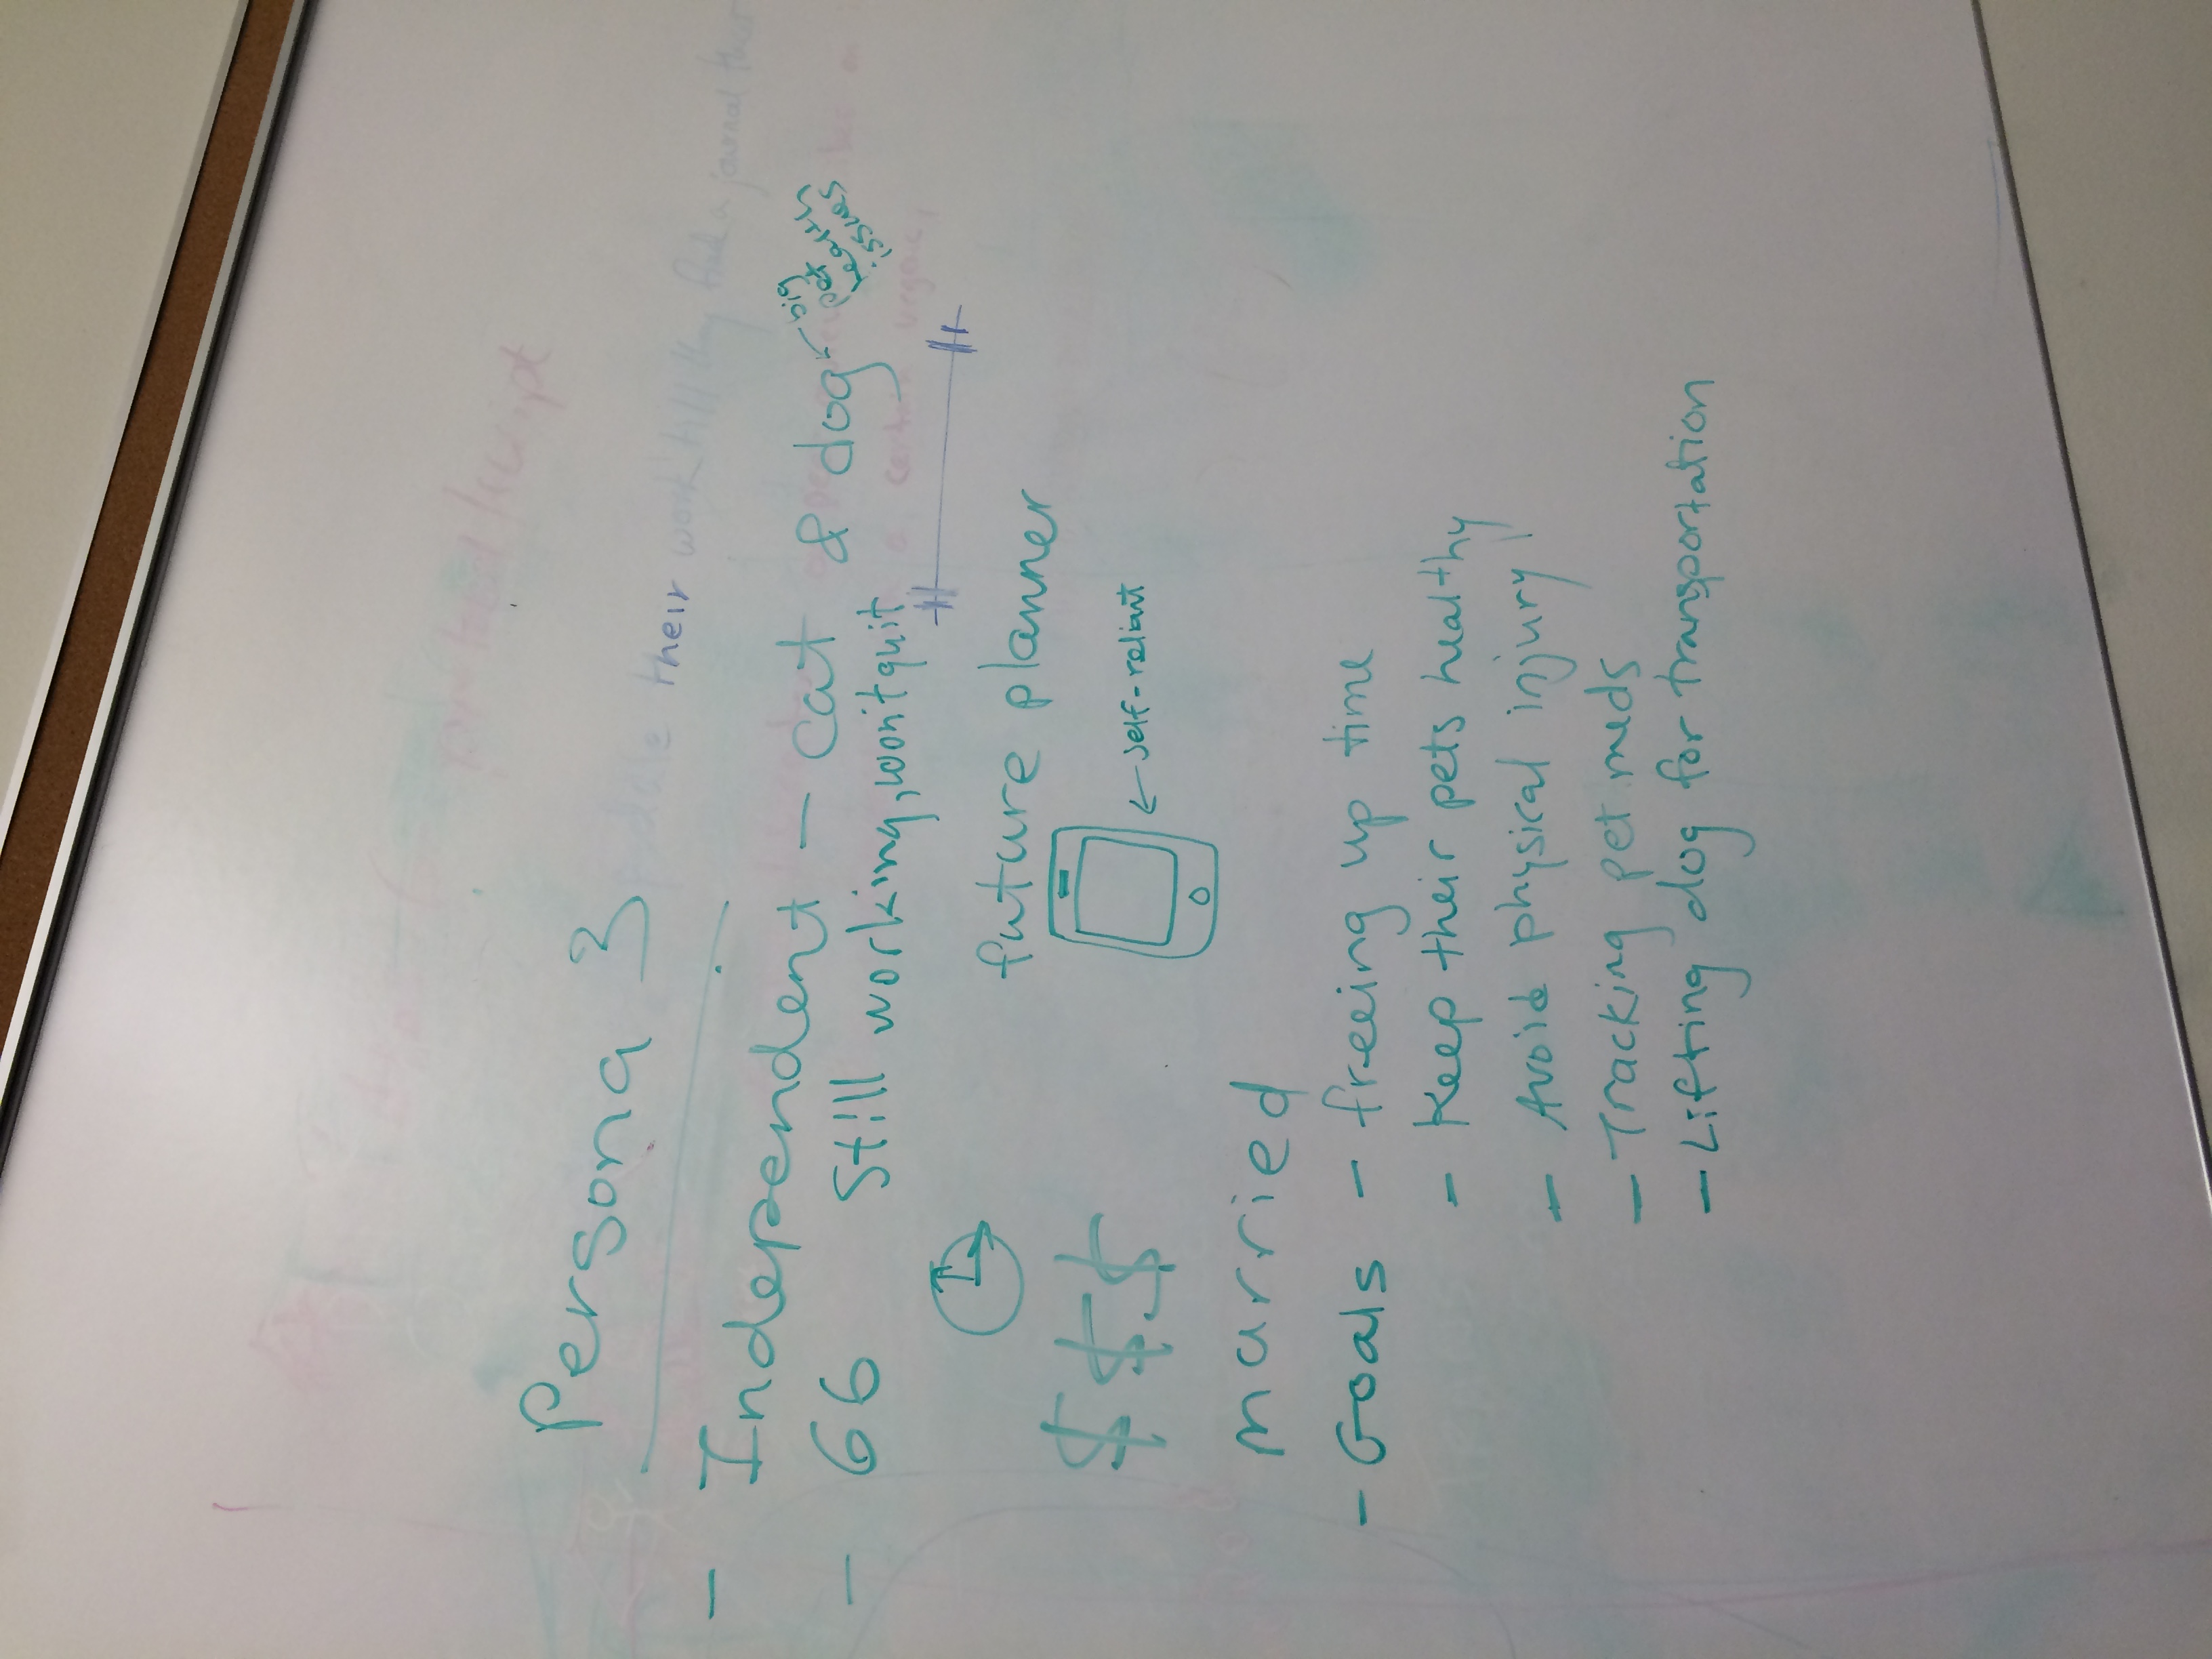 script
Persona 3
their work till they find a journal that
- Independent - cat & dog
big
pet
health
issues
- 66 Still working, won't quit
a certain urgency
future planner
$$$
self-reliant
married
- Goals - freeing up time
- Keep their pets healthy
- Avoid physical injury!
- Tracking pet meds
- Lifting dog for transportation